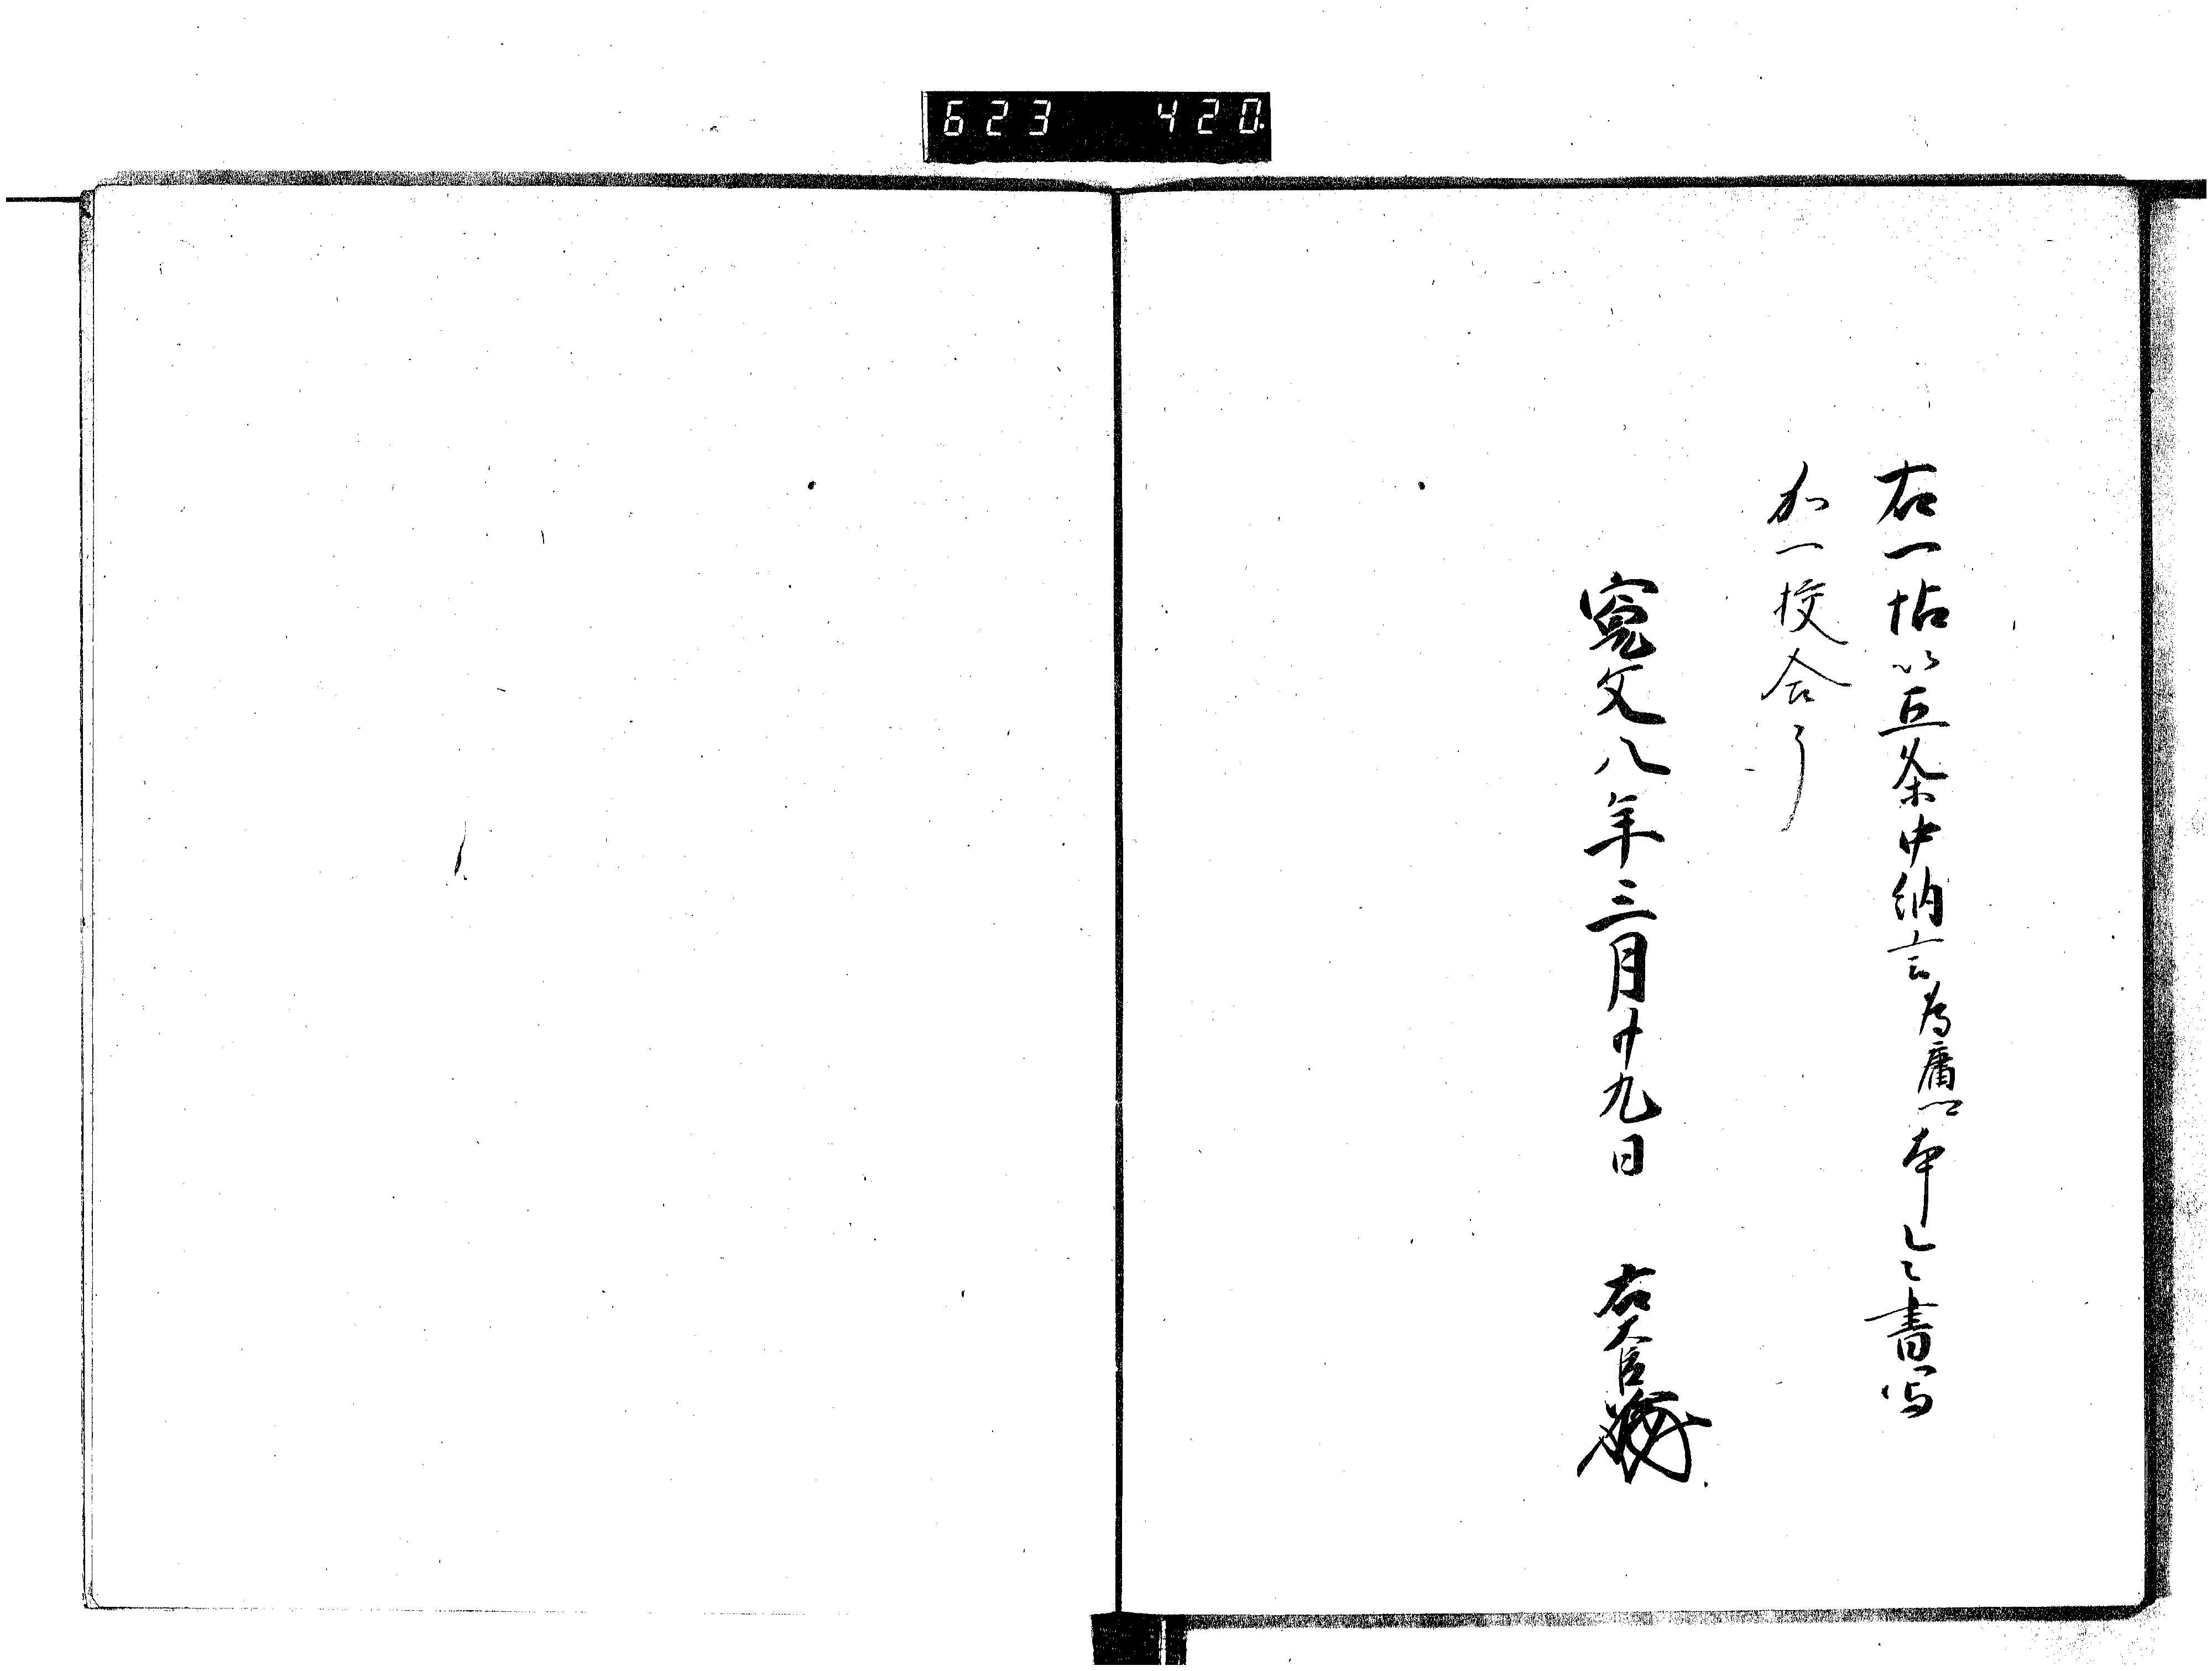 623 420
右一帖以五条中納言為庸卿本令書写
加一校合了
寛文八年三月廿九日 右大臣